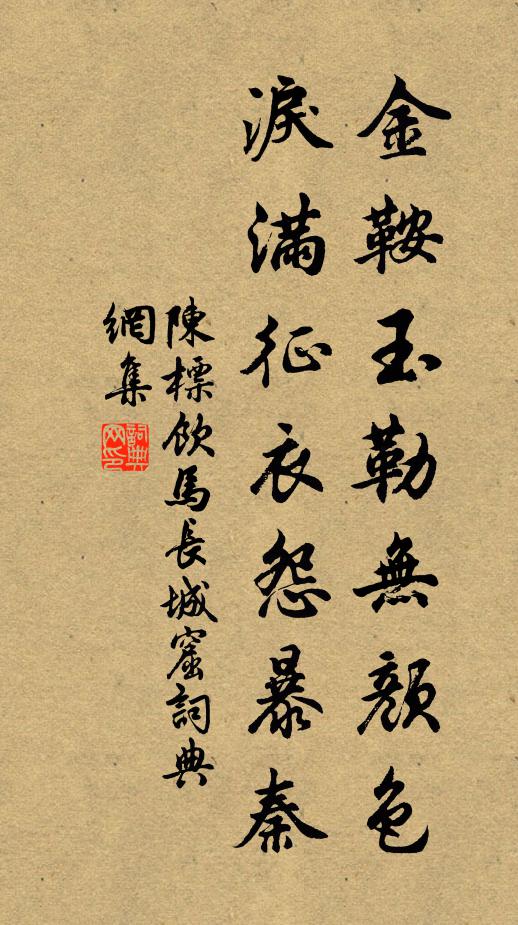 金鞍玉勒無顏色
淚滿征衣怨暴秦
陳標飲馬長城窟詞典
網集
詞典
网印